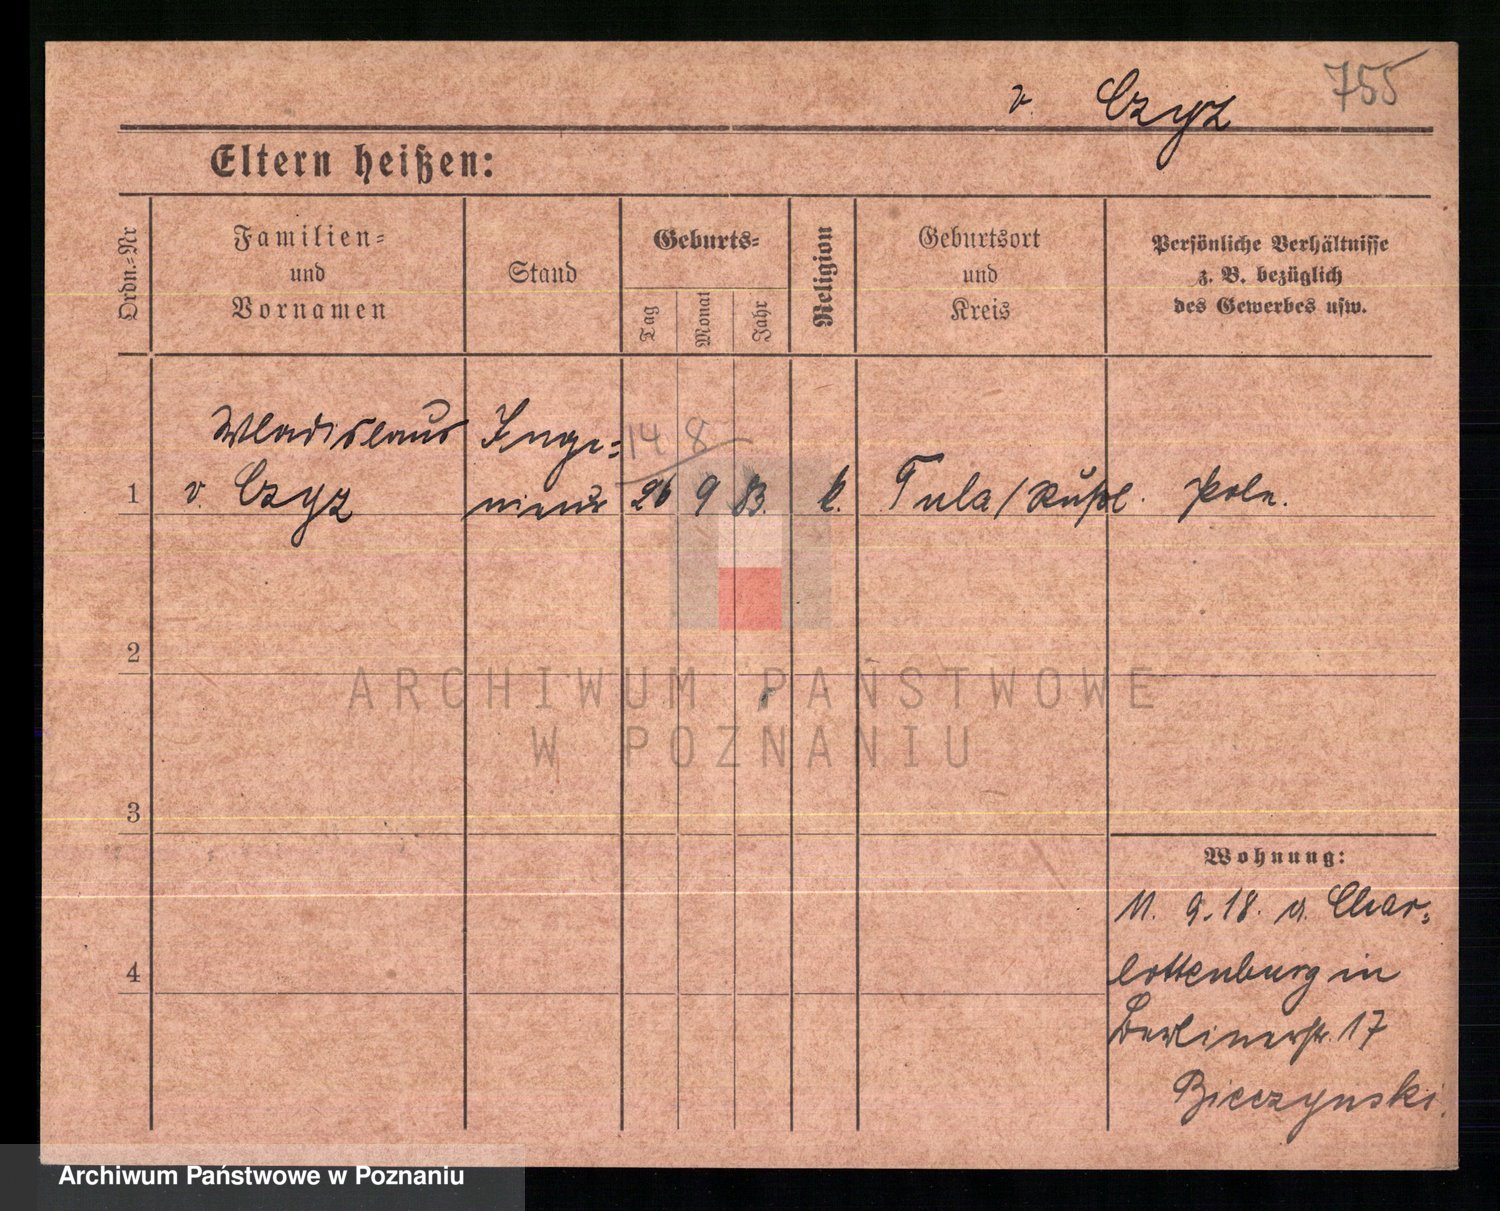 v. Czyz 755
Eltern heißen:
Ordn.-Nr
Familien-
und
Vornamen
Stand
Geburts-
Tag
Monat
Jahr
Religion
Geburtsort
und
Kreis
Persönliche Verhältnisse
z. B. bezüglich
des Gewerbes usw.
Wladislaus Inge-
14 8
1 v. Czyz nieur 26 9 83. k. Tula/Rußl. Pole.
2
ARCHIWUM PAŃSTWOWE
W POZNANIU
3
Wohnung:
11. 9. 18. a. Char-
4 lottenburg in
Berlinerstr. 17
Bieczynski.
Archiwum Państwowe w Poznaniu